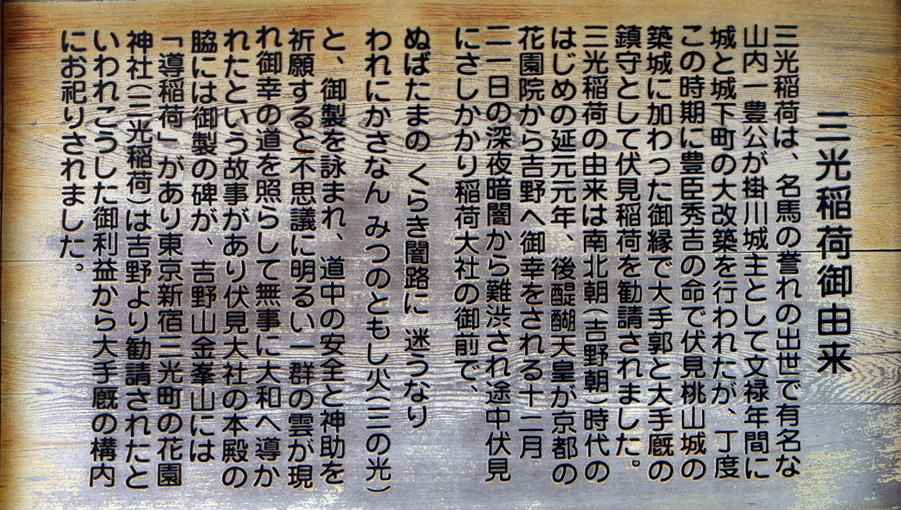 三光稲荷御由来
三光稲荷は、名馬の誉れの出世で有名な
山内一豊公が掛川城主として文禄年間に
城と城下町の大改築を行われたが、丁度
この時期に豊臣秀吉の命で伏見桃山城の
築城に加わった御縁で大手郭と大手厩の
鎮守として伏見稲荷を勧請されました。
三光稲荷の由来は南北朝(吉野朝)時代の
はじめの延元元年、後醍醐天皇が京都の
花園院から吉野へ御幸をされる十二月
二一日の深夜暗闇から難渋され途中伏見
にさしかかり稲荷大社の御前で、
ぬばたまの くらき闇路に 迷うなり
われにかさなん みつのともし火(三の光)
と、御製を詠まれ、道中の安全と神助を
祈願すると不思議に明るい一群の雲が現
れ御幸の道を照らして無事に大和へ導か
れたという故事があり伏見大社の本殿の
脇には御製の碑が、吉野山金峯山には
「導稲荷」があり東京新宿三光町の花園
神社(三光稲荷)は吉野より勧請されたと
いわれこうした御利益から大手厩の構内
にお祀りされました。